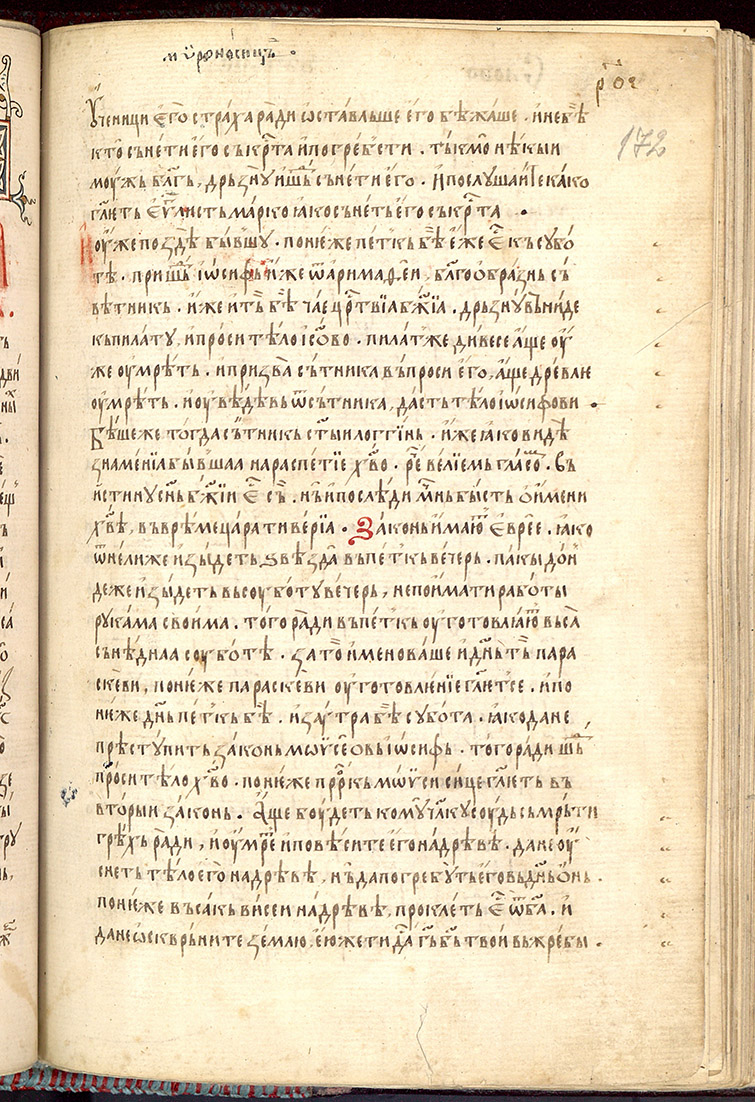 мѷроносицⸯ
ро҃в
172
Ѹченици є҆го страха ради ѡставльше є҆го бѣжаше . и не бѣ
кто сънети є҆го съ крⷭта и погребⷭти . тъкмо нѣкыи
моужь благъ , дръзнꙋ и шⷣь сънети є҆го . И послꙋшаите како
гл҃ють є҆ѵⷢлисть марко ꙗко сънеть є҆го съ крⷭта .
Оуже поздѣ бывшꙋ . понѥже петⸯкь бѣ єже єⷭ къ сꙋбо
тѣ . пришⷣь іѡсифь иже ѿ аримаѳеи , благоѡбразнь съ
вѣтникь . иже и тъ бѣ чае црⷭтвїа бж҃їа . дръзнꙋвь вниде
къ пилатꙋ , и проси тѣло іс҃ово . пилатⸯже дивесе аще оу
же оумрѣть . и призва сътника въпроси є҆го , аще древлѥ
оумрѣть . и оувѣдѣвь ѿ сътника , дасть тѣло іѡсифови .
Бѣше же тогда сътникь ст҃ыи логгїнь . иже ꙗко видѣ
знаменїа бывшаа на распетїе хв҃о . рⷱе велїемь гласоⷨ . въ
истинꙋ сн҃ь бж҃їи єⷭ съ . нь и послѣди мⷱнкь бысть ѡ имени
хв҃ѣ , въ врѣме цара тиверїа . Законь имаюⷮ євреє . ꙗко
ѿнелиже изыдеть ѕвѣзда въ петⸯкь вечерь . пакы дон
деже изыдеть вь соуботꙋ вечерь , не поймати работы
рꙋкама своима . того ради въ петⸯкь оуготовлꙗюⷮ вьса
сънѣднаа соуботѣ . за то именоваше и дн҃ь тъ пара
скеви , понѥже параскеви оуготовлѥнїе гл҃ютⸯсе . и по
нѥже дн҃ь петⸯкь бѣ . и заꙋтра бѣ сꙋбота . ꙗко да не
прѣстꙋпить законь мѡѵсеовь іѡсифь . того ради шⷣь
проси тѣло хв҃о . понѥже прⷪркь мѡѵси сице гл҃ють въ
вторыи законь . Аще боудеть комꙋ чл҃кꙋ соудь съмрьти
грѣхъ ради , и оумреⷮ и повѣсите є҆го на дрѣвѣ . да не оу
снеть тѣло є҆го на дрѣвѣ , нь да погребꙋть є҆го вь дн҃ь онь .
понѥже въсакь висеи на дрѣвѣ , проклеть єⷭ ѿ ба҃ . и
да не ѡскврьните землю , юже ти даⷭ гь҃ бь҃ твои вь жребы .